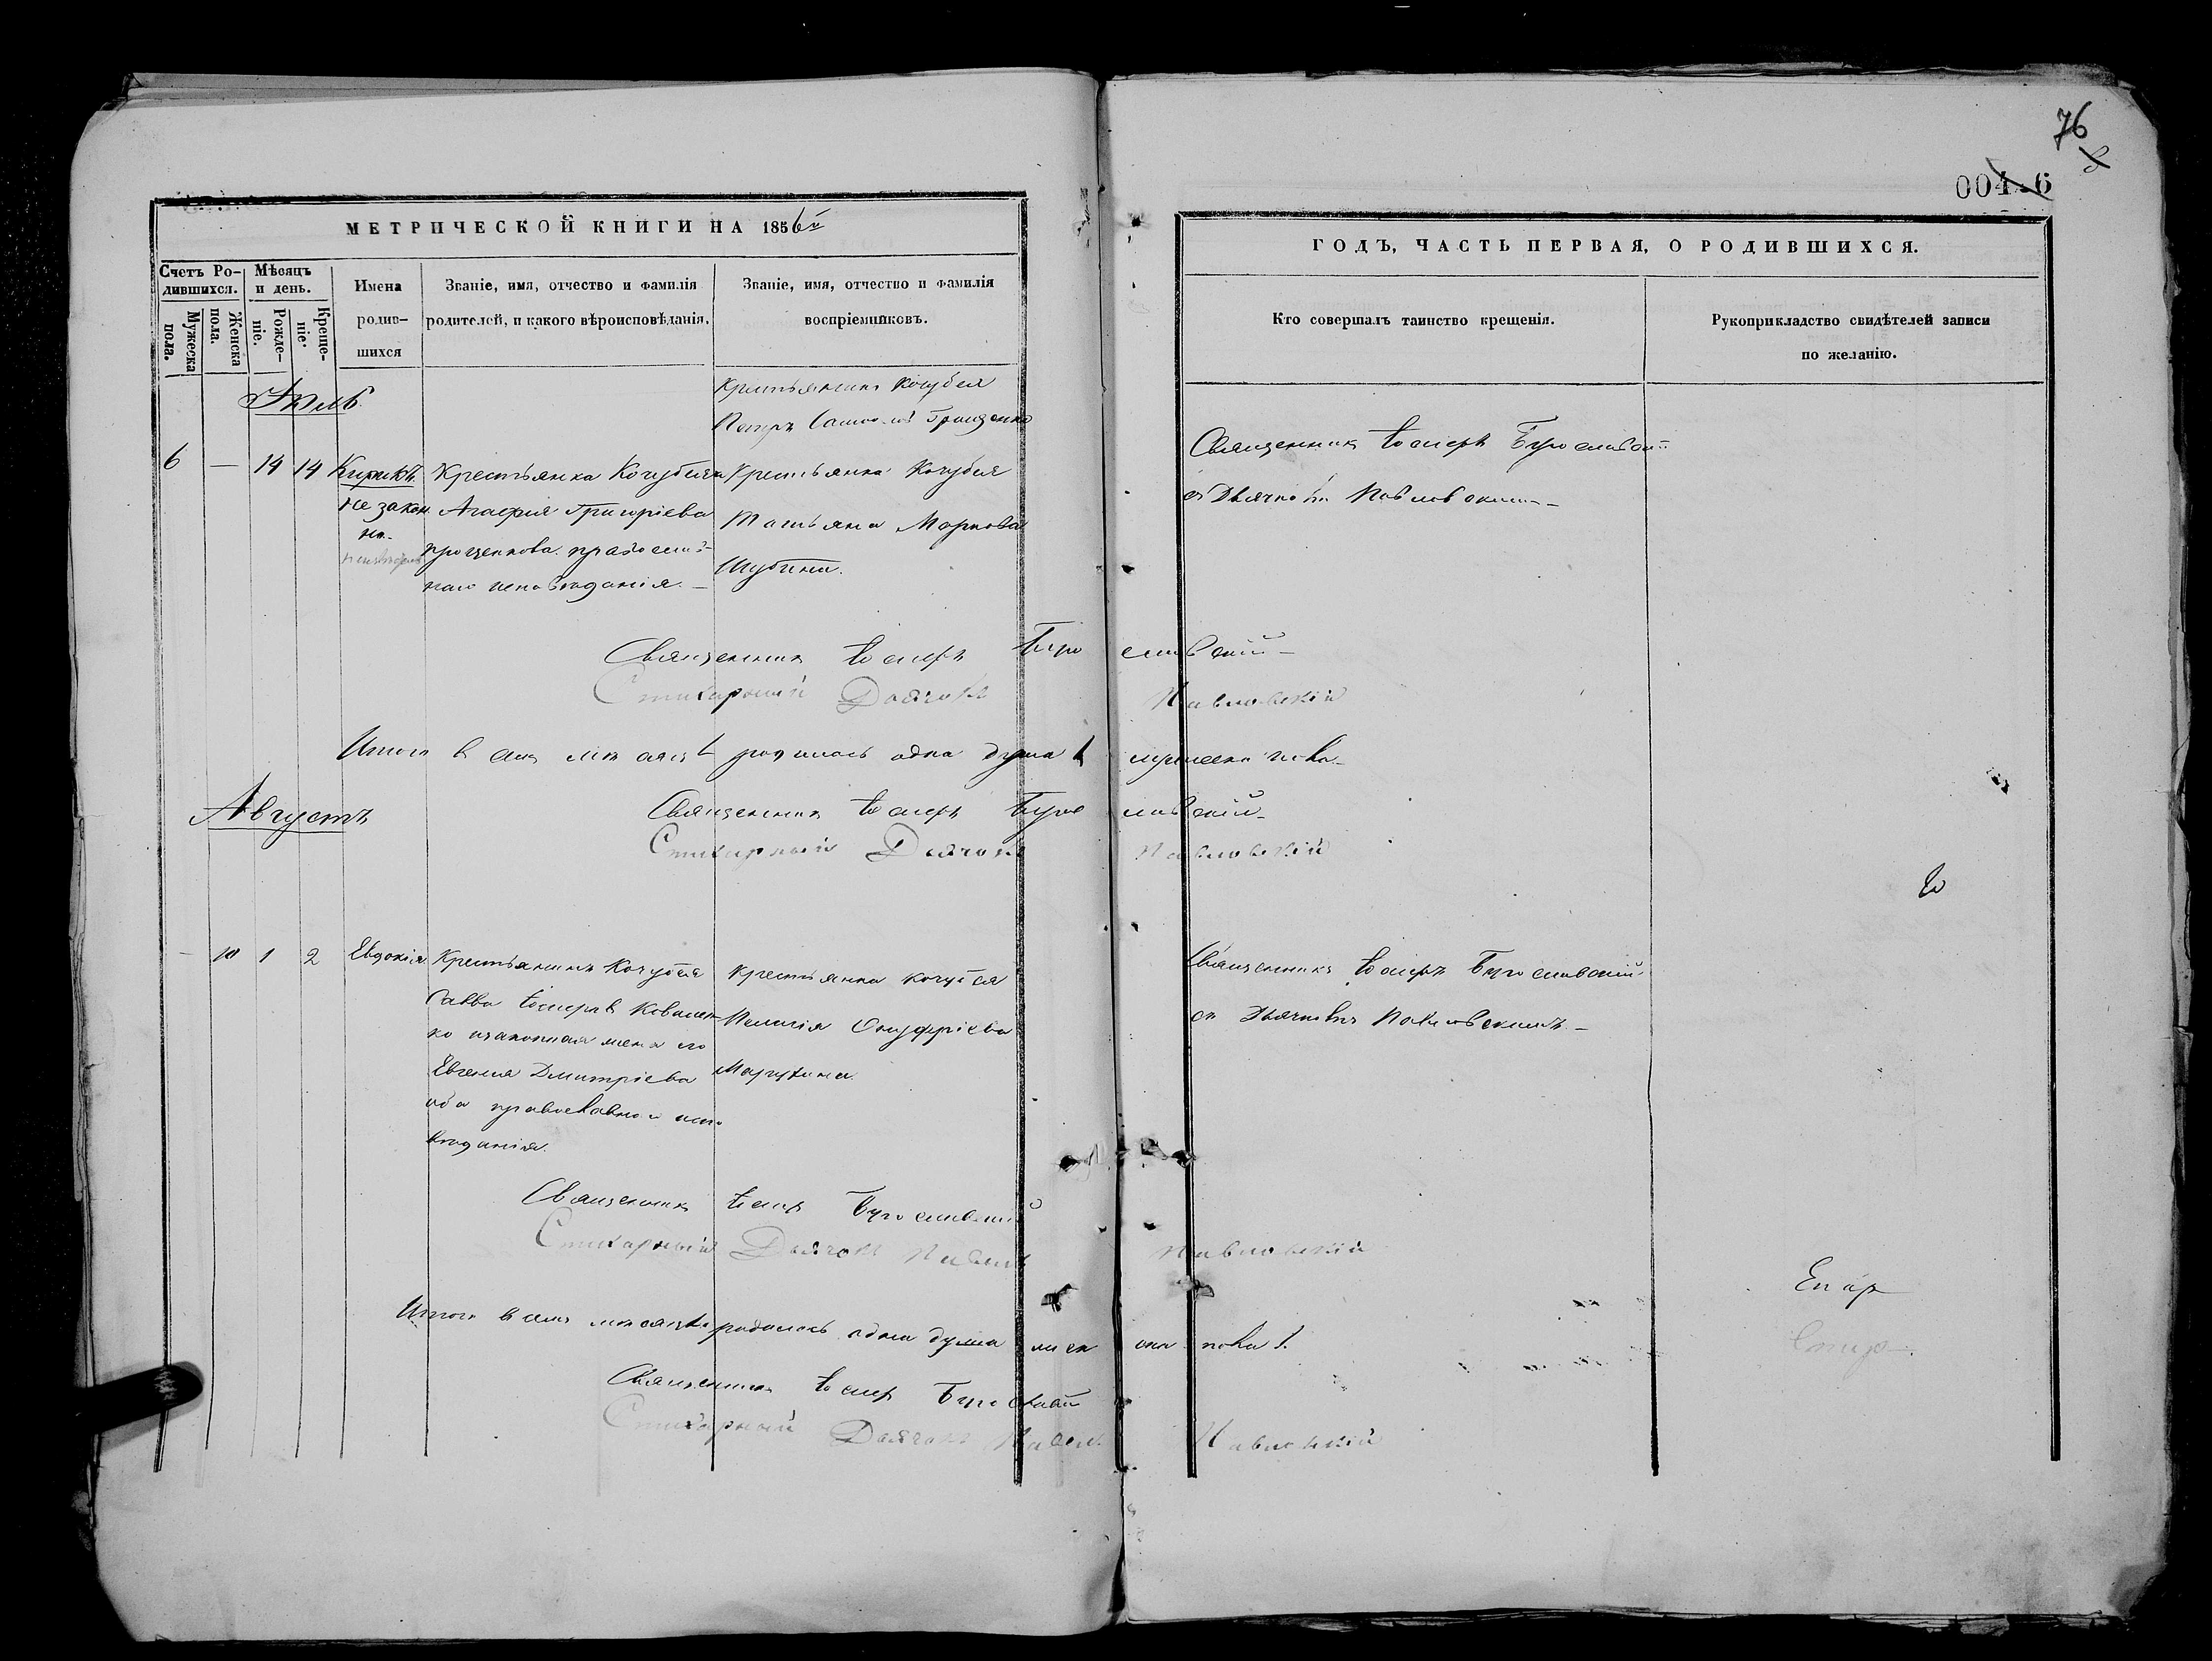 76
004-6
МЕТРИЧЕСКОЙ КНИГИ НА 1856й
ГОДЪ, ЧАСТЬ ПЕРВАЯ, О РОДИВШИХСЯ.
Счетъ Ро-
дившихся.
Мужеска
пола.
Женска
пола.
Мѣсяцъ
и день.
Рожде-
ніе.
Креще-
ніе.
Имена
родив-
шихся
Званіе, имя, отчество и фамилія
родителей, и какого вѣроисповѣданія.
Званіе, имя, отчество и фамилія
воспріемниковъ.
Кто совершалъ таинство крещенія.
Рукоприкладство свидѣтелей записи
по желанію.
Іюль
6 — 14 14
Кирикъ
незакон
но-
Крестьянка Кочубея
Агафія Григоріева
православ-
наго исповѣданія. —
Крестьянинъ Кочубея
Петръ
Крестьянка Кочубея
Татьяна Маркова
Шубина.
Священникъ Іосифъ Бугославскій
съ Дьячкомъ Павловскимъ
Священникъ Іосифъ Бугославскій
Стихарный Дьячокъ Павловскій
Итого в семъ мѣсяцѣ родилась одна душа 1 мужеска пола
Священникъ Іосифъ Бугославскій
Стихарный Дьячокъ Павловскій
Августъ
— 10 1 2
Евдокія
Крестьянинъ Кочубея
Савва Іосифовъ Ковален
ко изаконная жена его
Евгенія Дмитріева
оба православнаго испо
вѣданія.
Крестьянка Кочубея
Пелагія Онуфріева
Священникъ Іосифъ Бугославскій
съ Дьячковъ Павловскимъ —
Священникъ Іосифъ Бугославскій
Стихарный Дьячокъ Павелъ Павловскій
Итого в семъ мѣсяцѣ родилась одна душа женска пола 1.
Священникъ Іосифъ Бугославскій
Стихарный Дьячокъ Павелъ Павловскій